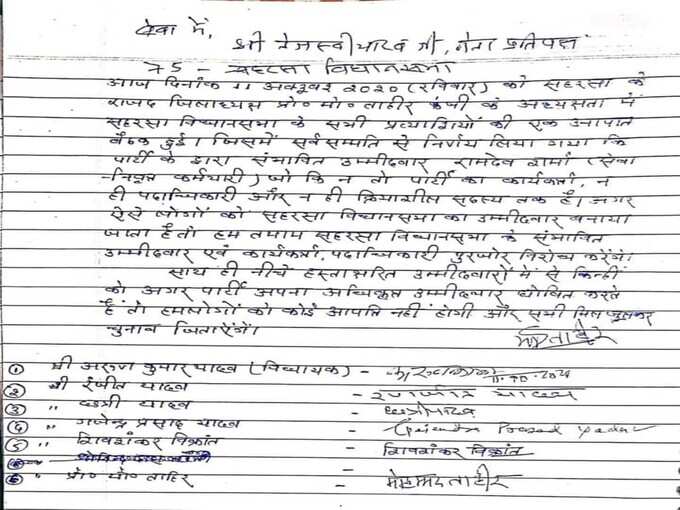 सेवा में,
श्री तेजस्वी यादव जी, नेता प्रतिपक्ष
75 - सहरसा विधानसभा
आज दिनांक 11 अक्टूबर 2020 (रविवार) को सहरसा के
राजद जिलाध्यक्ष प्रो० मो० ताहिर जी के अध्यक्षता में
सहरसा विधानसभा के सभी प्रत्याशियों की एक आपात
बैठक हुई। जिसमें सर्वसम्मति से निर्णय लिया गया कि
पार्टी के द्वारा संभावित उम्मीदवार रामदेव शर्मा (सेवा
-निवृत्त कर्मचारी) जो कि न तो पार्टी का कार्यकर्ता, न
ही पदाधिकारी और न ही क्रियाशील सदस्य तक है। अगर
ऐसे लोगों को सहरसा विधानसभा का उम्मीदवार बनाया
जाता है तो हम तमाम सहरसा विधानसभा के संभावित
उम्मीदवार एवं कार्यकर्ता, पदाधिकारी पुरजोर विरोध करेंगे।
साथ ही नीचे हस्ताक्षरित उम्मीदवारों में से किन्हीं
को अगर पार्टी अपना अधिकृत उम्मीदवार घोषित करते
हैं तो हमलोगों को कोई आपत्ति नहीं होगी और सभी मिलजुलकर
चुनाव जितायेंगे।
① श्री अरुण कुमार यादव (विधायक) - 11.10.2020
② श्री रंजीत यादव - रणजीत यादव
③ " छत्री यादव - छत्री यादव
④ " गजेन्द्र प्रसाद यादव - Gajendra Prasad Yadav
⑤ " शिवशंकर विक्रांत - शिवशंकर विक्रांत
⑥ " प्रो० मो० ताहिर - मोहम्मद ताहीर